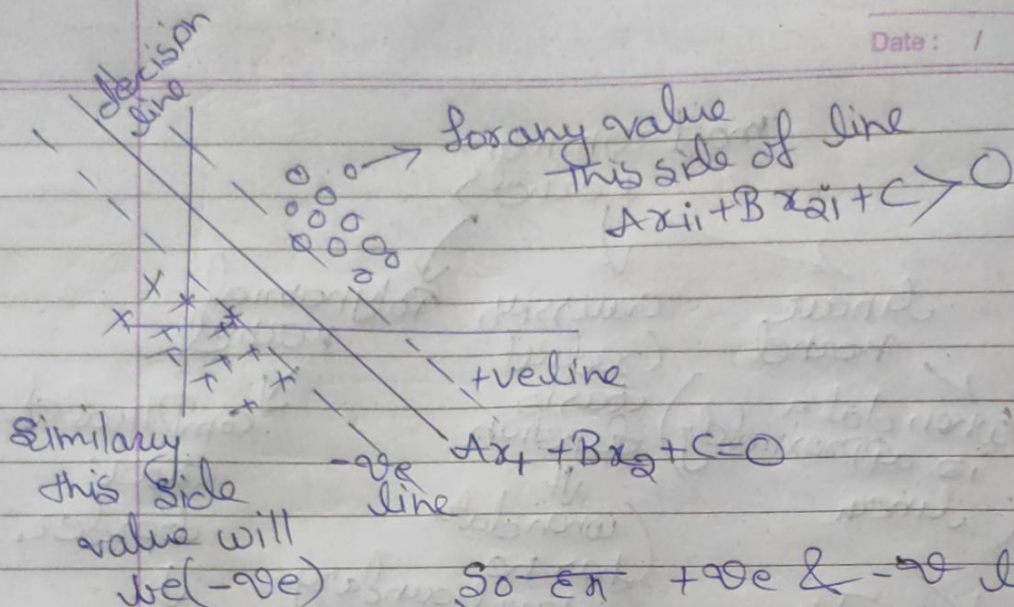 Date : /
decision
line
for any value
this side of line
Ax1i + Bx2i + C > 0
+ve line
Ax1 + Bx2 + C = 0
-ve
line
Similary
this side
value will
be (-ve)
So +ve & -ve